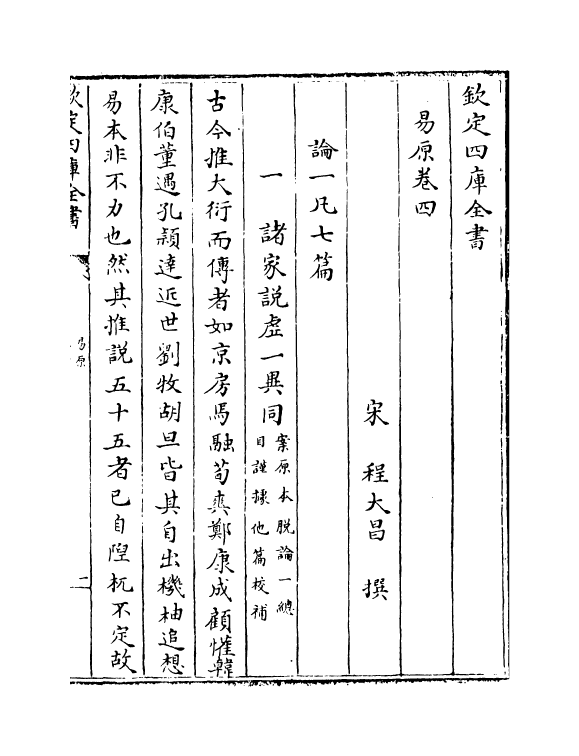 欽定四庫全書
易原卷四
宋　程大昌　撰
論一凡七篇
一　諸家說虛一異同案原本脱論一總目謹據他篇校補
古今推大衍而傳者如京房馬融荀爽鄭康成顧懽韓
康伯董遇孔頴達近世劉牧胡旦皆其自出機杼追想
易本非不力也然其推說五十五者已自隉杌不定故
欽定四庫全書
易原